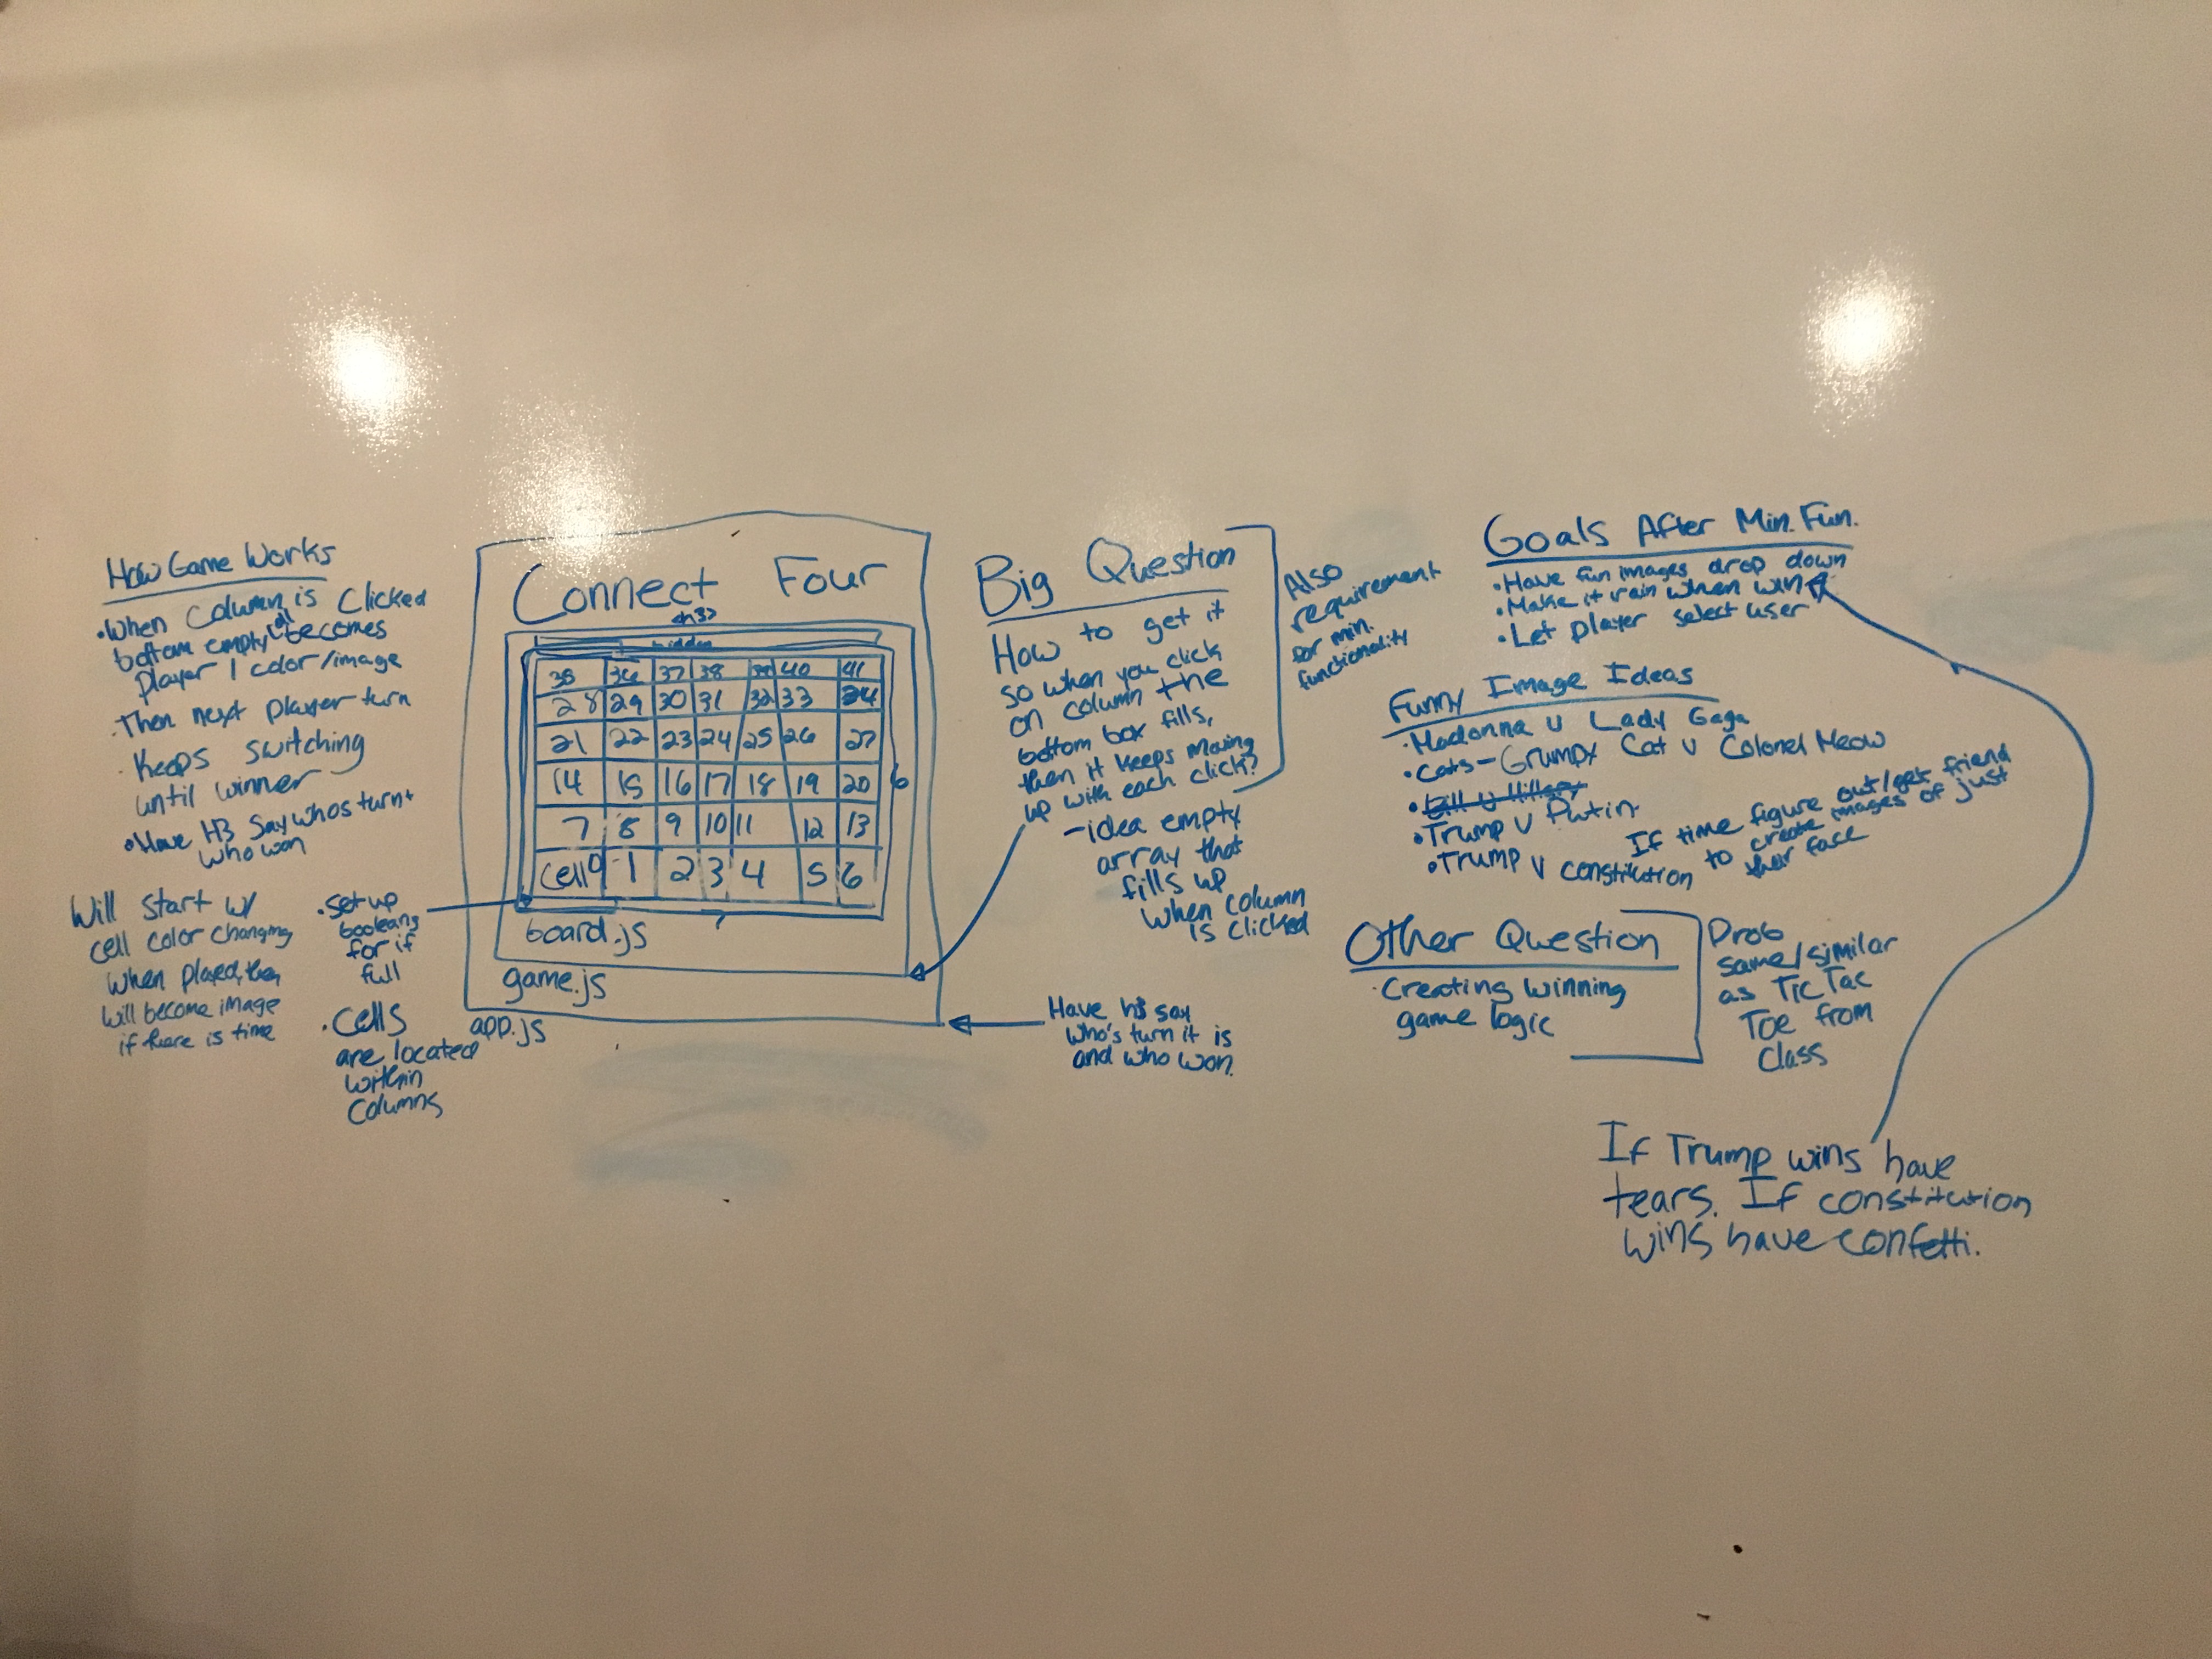 How Game Works
•When Column is Clicked
bottom empty cell becomes
Player 1 color/image
•Then next player turn
•Keeps switching
until winner
•Have H3 say whos turn +
who won
Will start w/
cell color changing
when played, then
will become image
if there is time
•set up
booleans
for if
full
•Cells
are located
within
columns
Connect Four
<h3>
hidden
35 36 37 38 39 40 41
28 29 30 31 32 33 34
21 22 23 24 25 26 27
14 15 16 17 18 19 20
7 8 9 10 11 12 13
cell 0 1 2 3 4 5 6
6
7
board.js
game.js
app.js
Big Question
How to get it
so when you click
on column the
bottom box fills,
then it keeps moving
up with each click?
-idea empty
array that
fills up
when column
is clicked
Also
requirement
for min.
functionality
Have h3 say
who's turn it is
and who won.
Goals After Min. Fun.
•Have fun images drop down
•Make it rain when win
•Let player select user
Funny Image Ideas
•Madonna v Lady Gaga
•Cats-Grumpy Cat v Colonel Meow
•Bill v Hillary
•Trump v Putin
•Trump v constitution
If time figure out/get friend
to create images of just
their face
Other Question
•Creating winning
game logic
Prob
same/similar
as Tic Tac
Toe from
Class
If Trump wins have
tears. If constitution
wins have confetti.